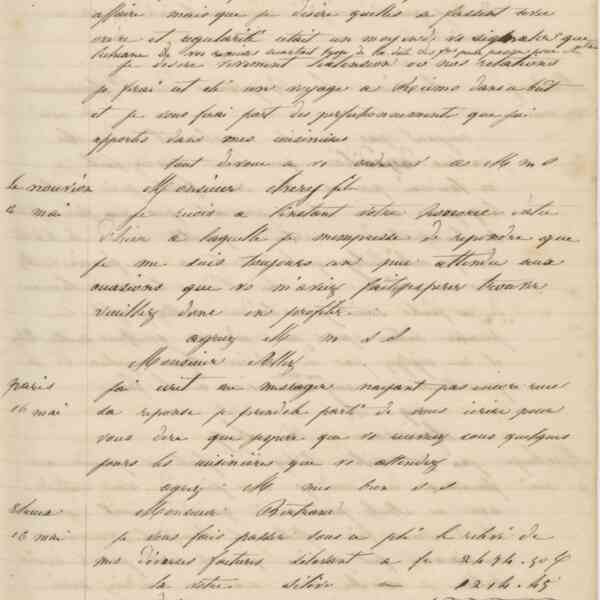 affaire mais que je désire quelles se fassent avec
ordre et regularité était un moyen de vs signaler que
je desire vivement l'extension de nos relations
je ferai cet été un voyage a Reims dans ce but
et je vous ferai part des perfectionnements que j'ai
apportés dans mes cuisinières
tout devoué a vs ordres
le nouvion Monsieur fils
12 mai je reçois a l'instant votre honorée datée
d'hier a laquelle je m'empresse de repondre que
je me suis toujours un peu attendu aux
occasions que vs m'aviez fait esperer trouver
veuillez donc en profiter.
agreez M m s s
Monsieur
paris j'ai écrit au menager n'ayant pas encore reçu
16 mai sa reponse je prends le parti de vous écrire pour
vous dire que j'espere que vs recevrez sous quelques
jours les cuisinières que vs attendez
agreez M mes bien s s
Monsieur Bertrand
16 mai je vous fais passer sous ce pli le relevé de
mes diverses factures s'élevant a fr 2474.50
la votre s'élève 1214.45